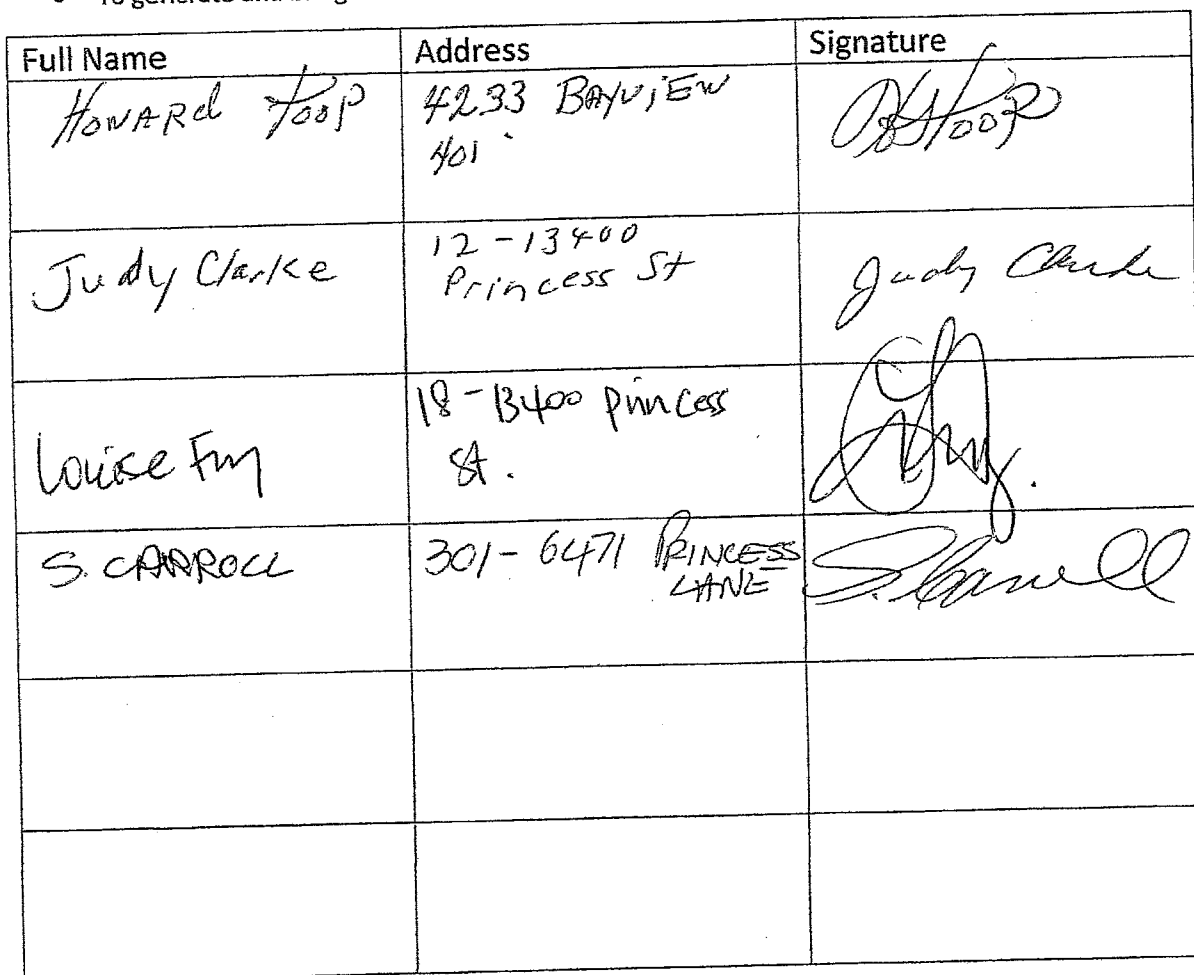 To generate and
Full Name Address Signature
Howard Toop 4233 Bayview
401
Judy Clarke 12-13400
Princess St Judy Clarke
Louise 18-13400 Princess
St.
S. CARROLL 301-6471 PRINCESS
LANE S. Carroll